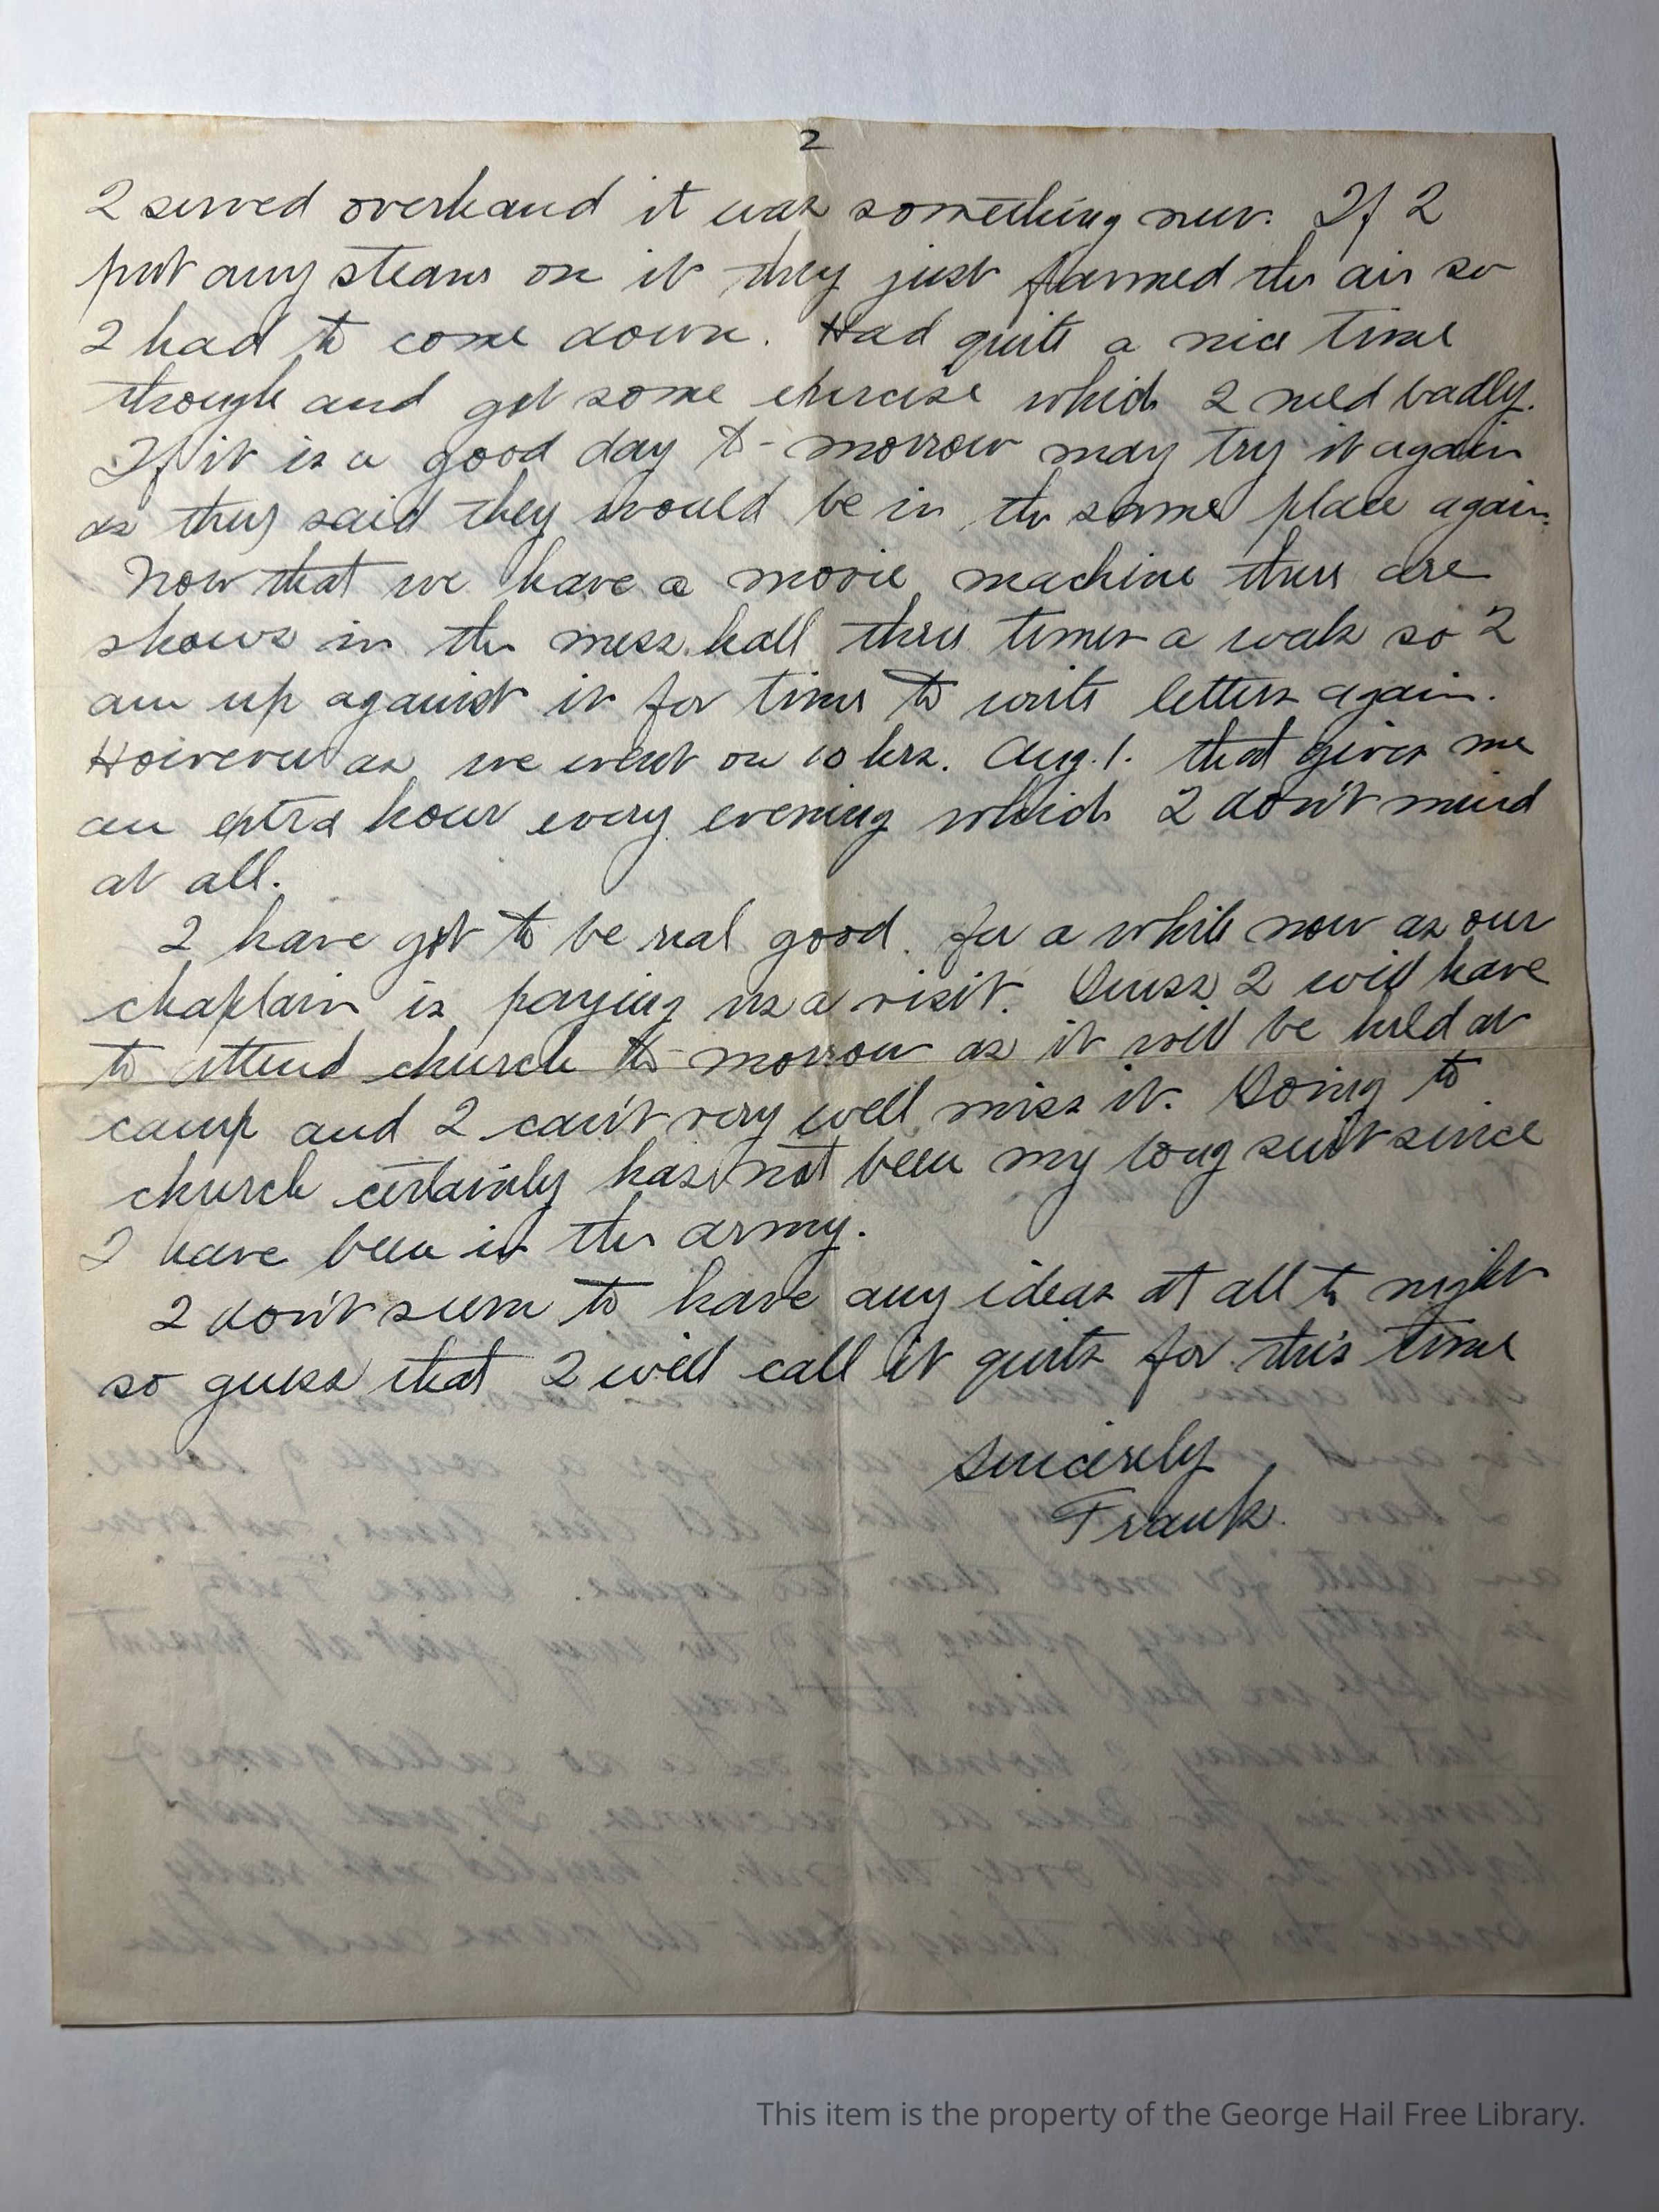 2
I served overhand it was something new. If I
put any steam on it they just fanned the air so
I had to come down. Had quite a nice time
though and got some exercise which I need badly.
If it is a good day to-morrow may try it again
as they said they would be in the same place again.
Now that we have a movie machine there are
shows in the mess hall three times a week so I
am up against it for time to write letters again.
However as we went on 10 hrs. Aug. 1. that gives me
an extra hour every evening which I don't mind
at all.
I have got to be real good for a while now as our
chaplain is paying us a visit. Guess I will have
to attend church to-morrow as it will be held at
camp and I can't very well miss it. Going to
church certainly has not been my long suit since
I have been in the army.
I don't seem to have any ideas at all to night
so guess that I will call it quits for this time
Sincerely
Frank.
This item is the property of the George Hail Free Library.